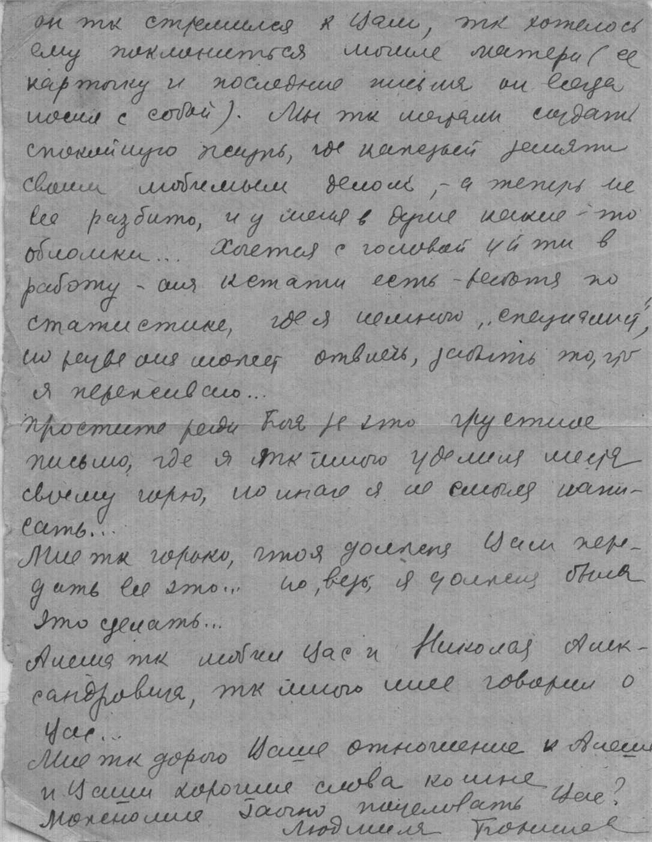 он тк стремился к Вам, тк хотелось
ему поклониться могиле матери (ее
карточку и последние письма он всегда
носил с собой). Мы тк мечтали создать
спокойную жизнь, где каждый занят
своим любимым делом, - а теперь
все разбито, и у меня в душе какие-то
обломки... Хочется с головой уйти в
работу - она кстати есть - работа по
статистике, где я немного "специалист",
но разве она может отвлечь, забыть то, что
я переживаю...
Простите ради Бога за это грустное
письмо, где я тк много уделила места
своему горю, но иначе я не смогла напи-
сать...
Мне тк горько, что я должна Вам пере-
дать все это... но, ведь, я должна была
это сделать...
Алеша тк любил Вас и Николая Алек-
сандровича, тк много мне говорил о
Вас...
Мне тк дорого Ваше отношение к Алеше
и Ваши хорошие слова ко мне
Можно мне поцеловать Вас?
Людмила